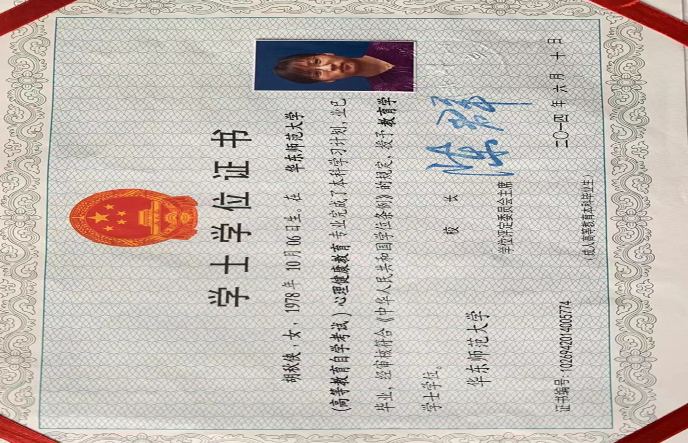 学士学位证书
胡秋侠，女，1978年 10月 06日生。在 华东师范大学
(高等教育自学考试）心理健康教育 专业完成了本科学习计划，业已
毕业，经审核符合《中华人民共和国学位条例》的规定，授予 教育学
学士学位。
华东师范大学
校 长
学位评定委员会主席
陈群
证书编号：1026942014005774
二〇一四 年 六月 十 日
（成人高等教育本科毕业生）